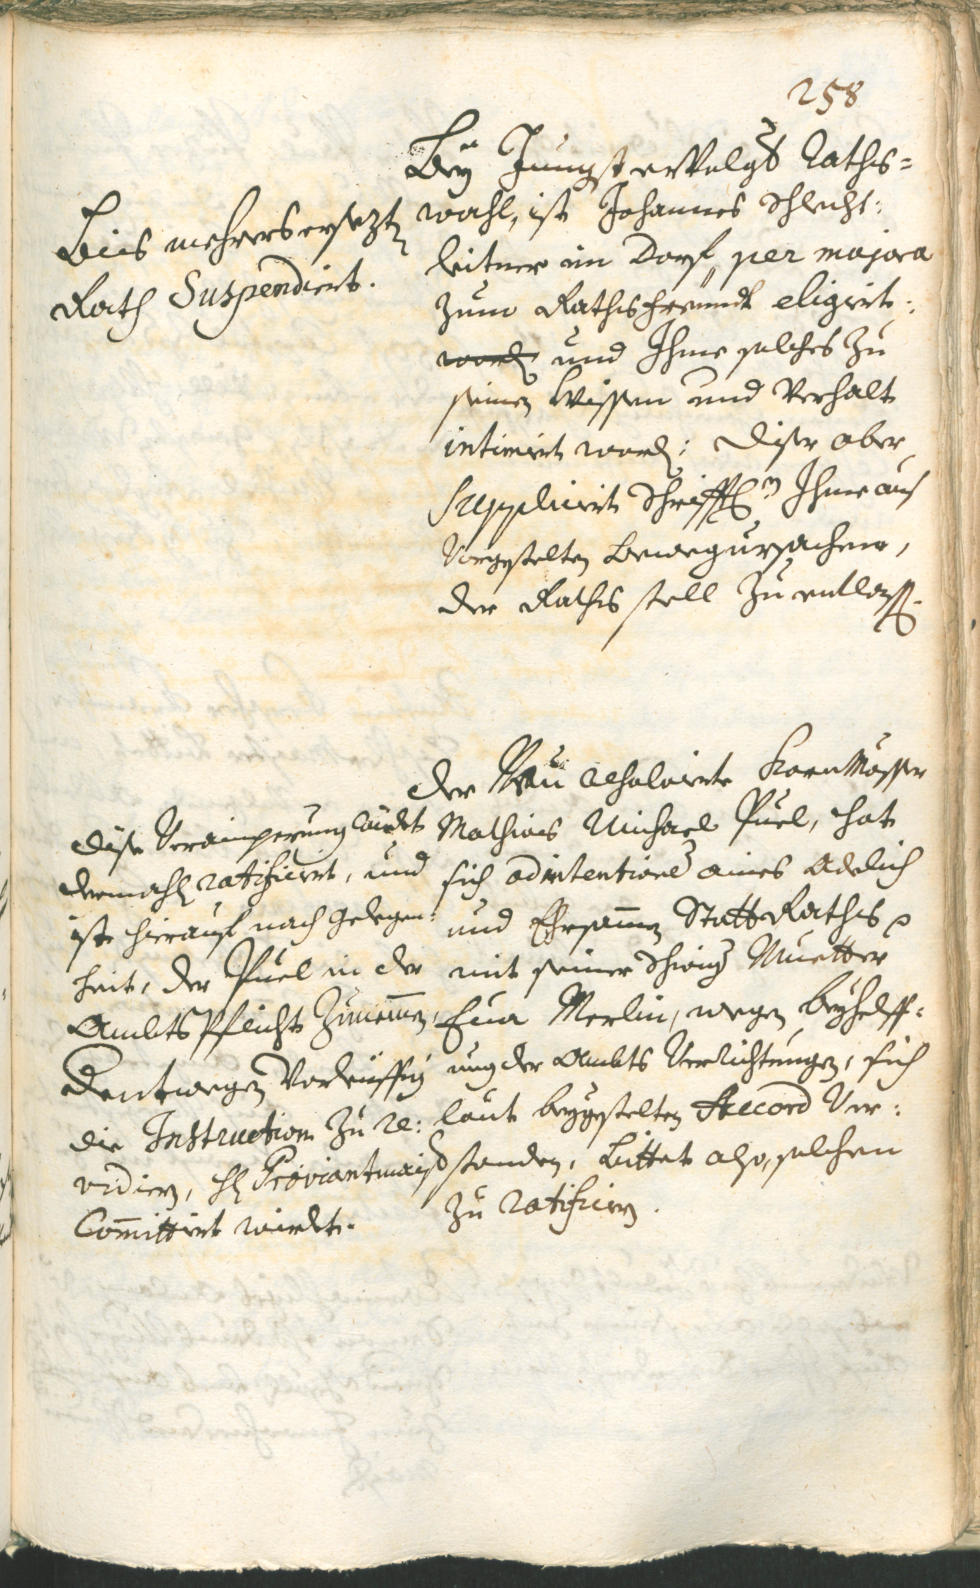 258
Bey Jungst ervolgter Raths=
wahl, ist Johannes Schlecht:
leitner im Dorf, per majora
zum Rathsfreundt eligirt:
word und Ihme solches zu
seinen Wissen und Verhalt
intimirt word: diser aber
Supplicirt Schrifftl: Ihme aus
Vorgestelten bewegursachen,
der Rathsstell zu entlass.
Bis mehrers ersezten
Rath Suspendiert.
der Neu resolvirte KornMässer
Mathias Michael Puel, hat
sich ad intentione aines Adelich
und Ehrsammen Statt Raths
mit seiner Schwig Muetter
Eua Merlin, wegen beyhelff=
ung der Ambts Verrichtungen, sich
laut beygestelten Accord Ver:
standen, bittet also, solchen
zu ratificiern.
dise Verainperung wirdet
dermahl ratificiert, und
ist hierauf nach gelegen:
heit, der Puel in der
AmbtsPflicht zunemmen,
dentwegen Vorleüffig
die Instruction zu re:
vidiern, H: Proviantmaister
Committirt wirdet.